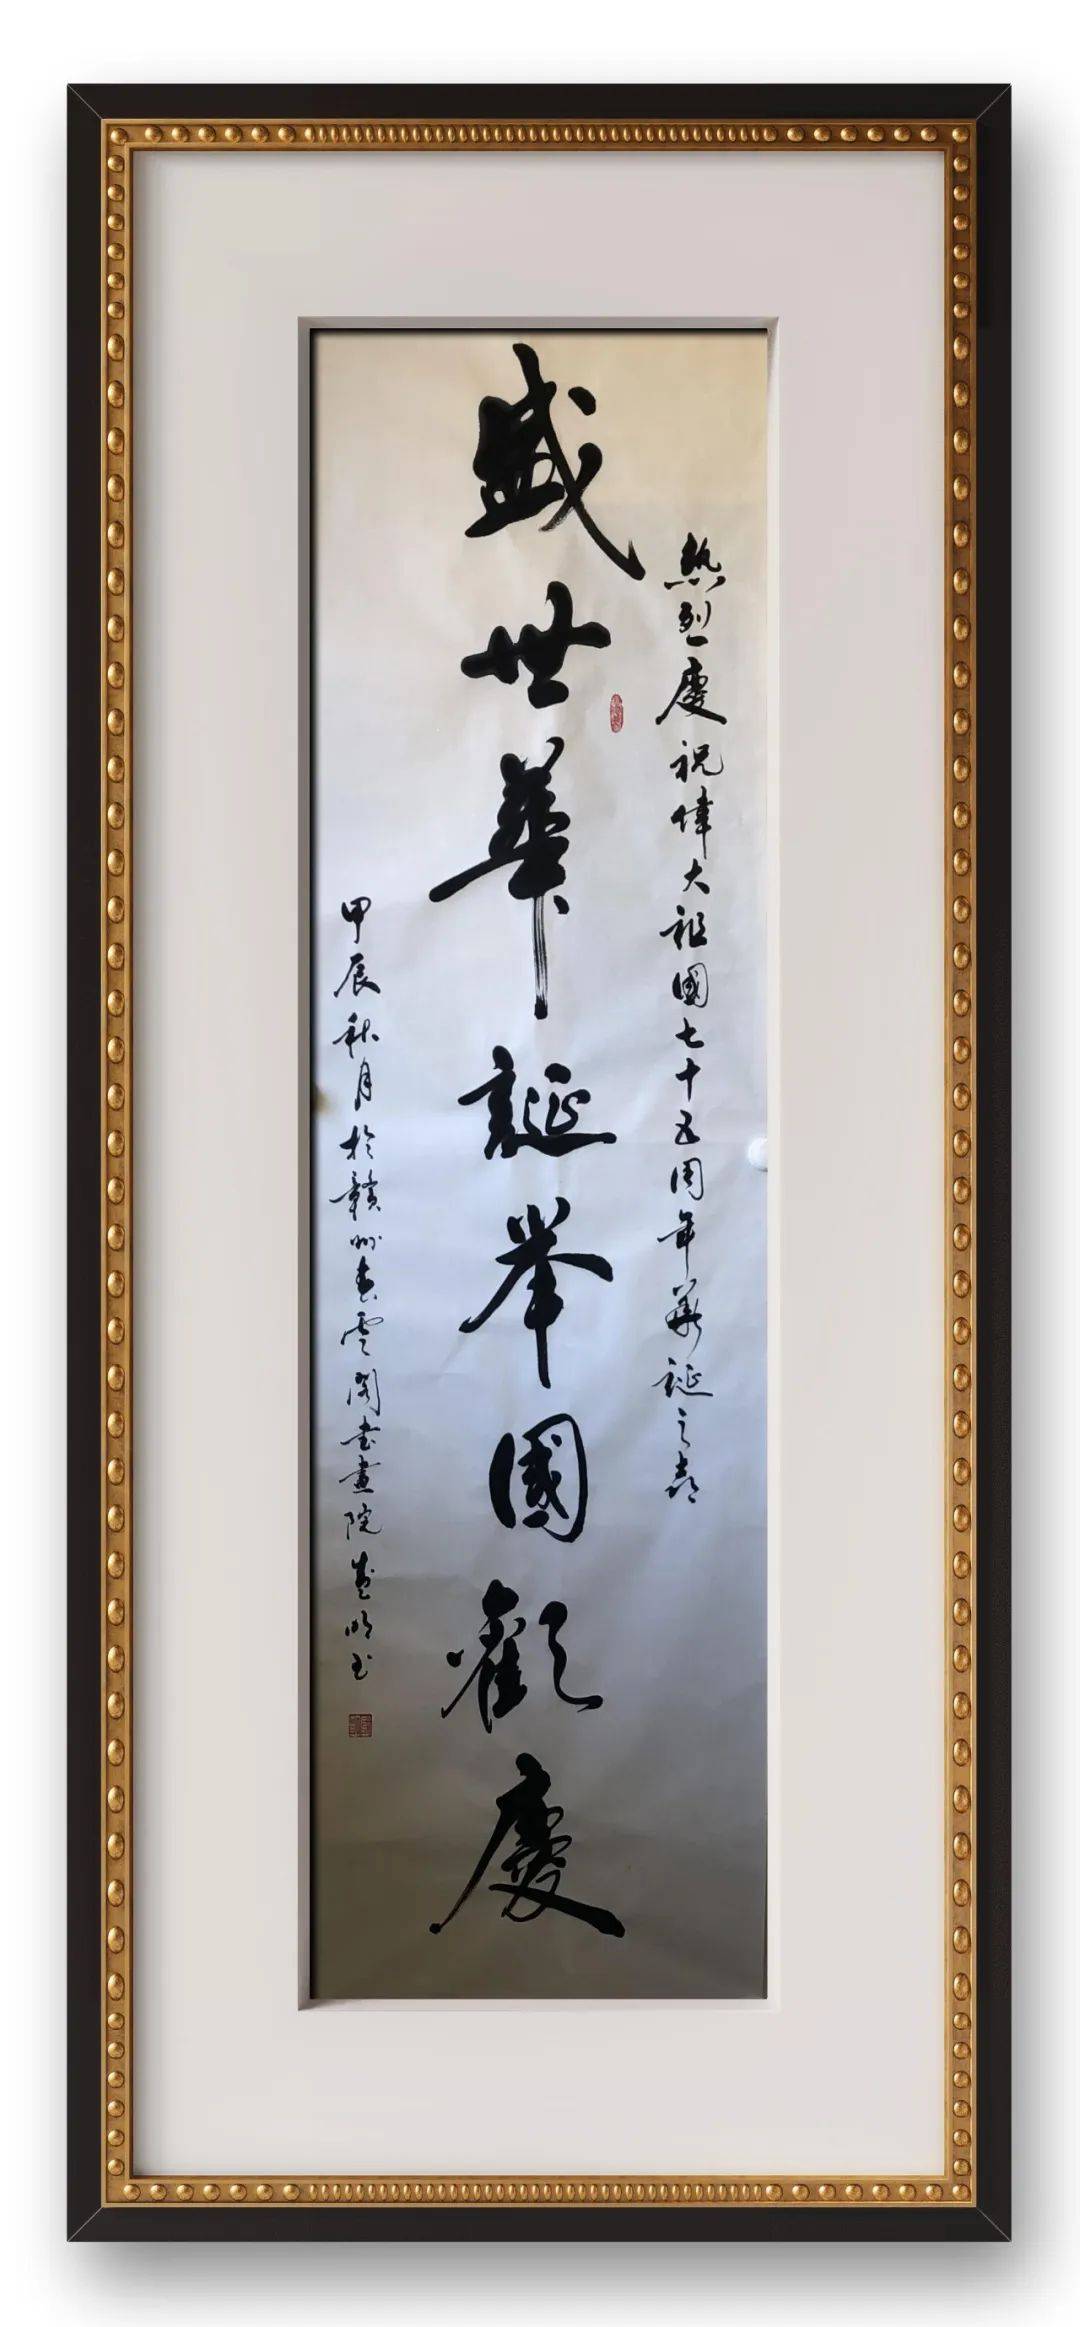 熱烈慶祝偉大祖國七十五周年華誕之喜
盛世華誕举國歡慶
甲辰秋月於贛州雲閣书畫院明